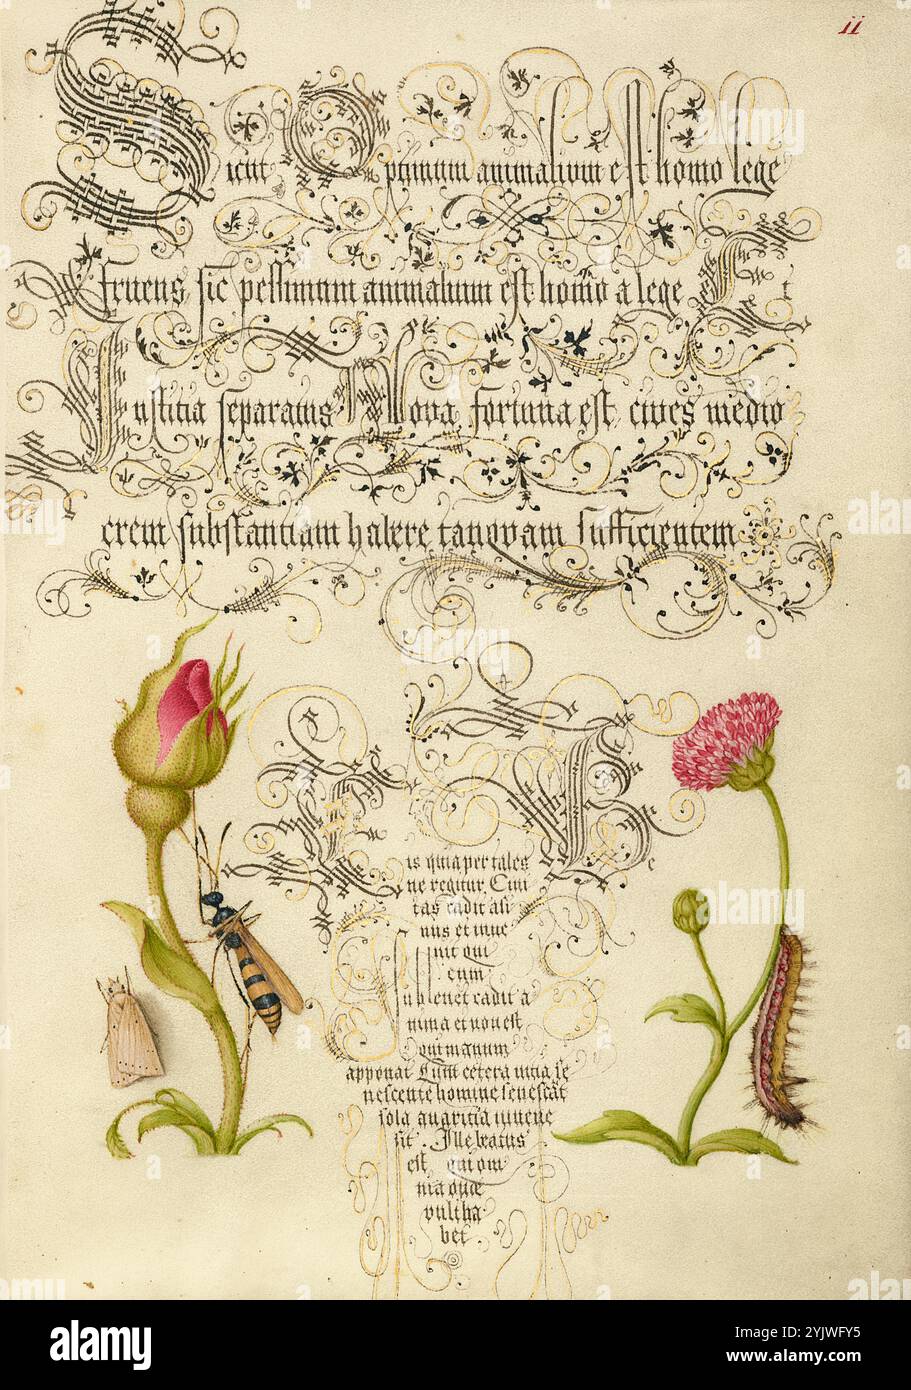 ii
Sicut Optimum animalium est homo lege
fruens, sic pessimum animalium est homo a lege Et
Iustitia separatus Nova fortuna est, cives medio
crem substantiam habere tanquam sufficientem
Be
is quia per tales
ne regitur, Civi
tas cadit ali
nus et iuve
nit qui
eum
sublevet cadit a
nima et non est
qui manum
apponat Cum cetera vitia se
nescente homine senescat
sola avaritia iuvene
sit. Ille beatus
est qui om
nia quæ
vult ha
bet
alamy
Image ID: 2YJWFY5
www.alamy.com